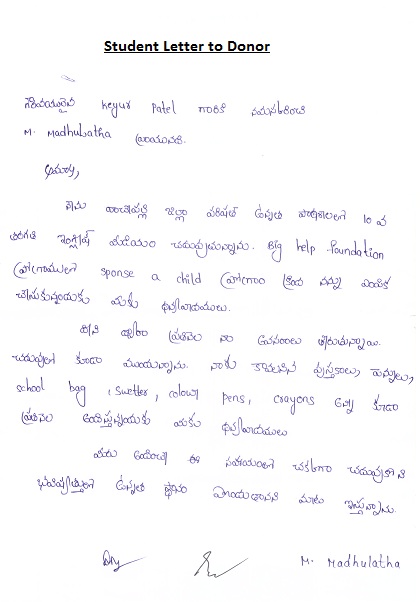 Student Letter to Donor
గౌరవనీయులైన Keyur Patel గారికి నమస్కరించి
M. Madhulatha వ్రాయునది.
అయ్యా,
నేను జిల్లా పరిషత్ ఉన్నత పాఠశాలలో 10 వ
తరగతి ఇంగ్లీష్ మీడియం చదువుతున్నాను. Big help foundation
ప్రోగ్రాములో sponse a child ప్రోగ్రాం క్రింద నన్ను ఎంపిక
చేసుకున్నందుకు మీకు ధన్యవాదములు.
దీని ద్వారా ప్రతినెల నా అవసరాలు తీరుతున్నాయి.
చదువులో కూడా ముందున్నాను. నాకు కావలసిన పుస్తకాలు, పెన్నులు,
school bag, swetter, colour pens, crayons అన్ని కూడా
ప్రతినెల అందిస్తున్నందుకు మీకు ధన్యవాదములు
మీరు అందించే ఈ సహాయంతో చక్కగా చదువుకొని
భవిష్యత్తులో ఉన్నత స్థానం పొందుతానని మాట ఇస్తున్నాను.
M. Madhulatha